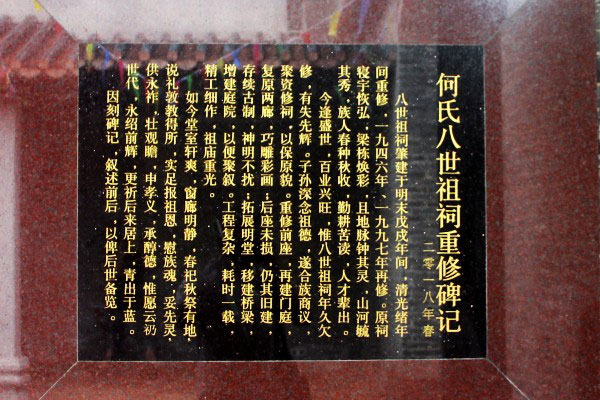 何氏八世祖祠重修碑记
二零一八年春
八世祖祠肇建于明末戊戌年间，清光绪年
间重修，一九四六年、一九九七年再修。原祠
寝宇恢弘，梁栋焕彩，且地脉钟其灵，山河毓
其秀，族人春种秋收，勤耕苦读，人才辈出。
今逢盛世，百业兴旺，惟八世祖祠年久欠
修，有失先辉。子孙深念祖德，遂合族商议，
聚资修祠，以保原貌。重修前座，再建门庭，
复原两廊，巧雕彩画；后座未损，仍其旧建，
存续古制，神明不扰；拓展明堂，移建桥梁，
增建庭院，以便聚叙。工程复杂，耗时一载，
精工细作，祖庙重光。
如今堂室轩爽，窗廊明静，春祀秋祭有地，
说礼敦教得所，实足报祖恩，慰族魂，妥先灵，
供永祚，壮观瞻，申孝义，承醇德，惟愿云礽
世代，永绍前辉，更祈后来居上，青出于蓝。
因刻碑记，叙述前后，以俾后世备览。